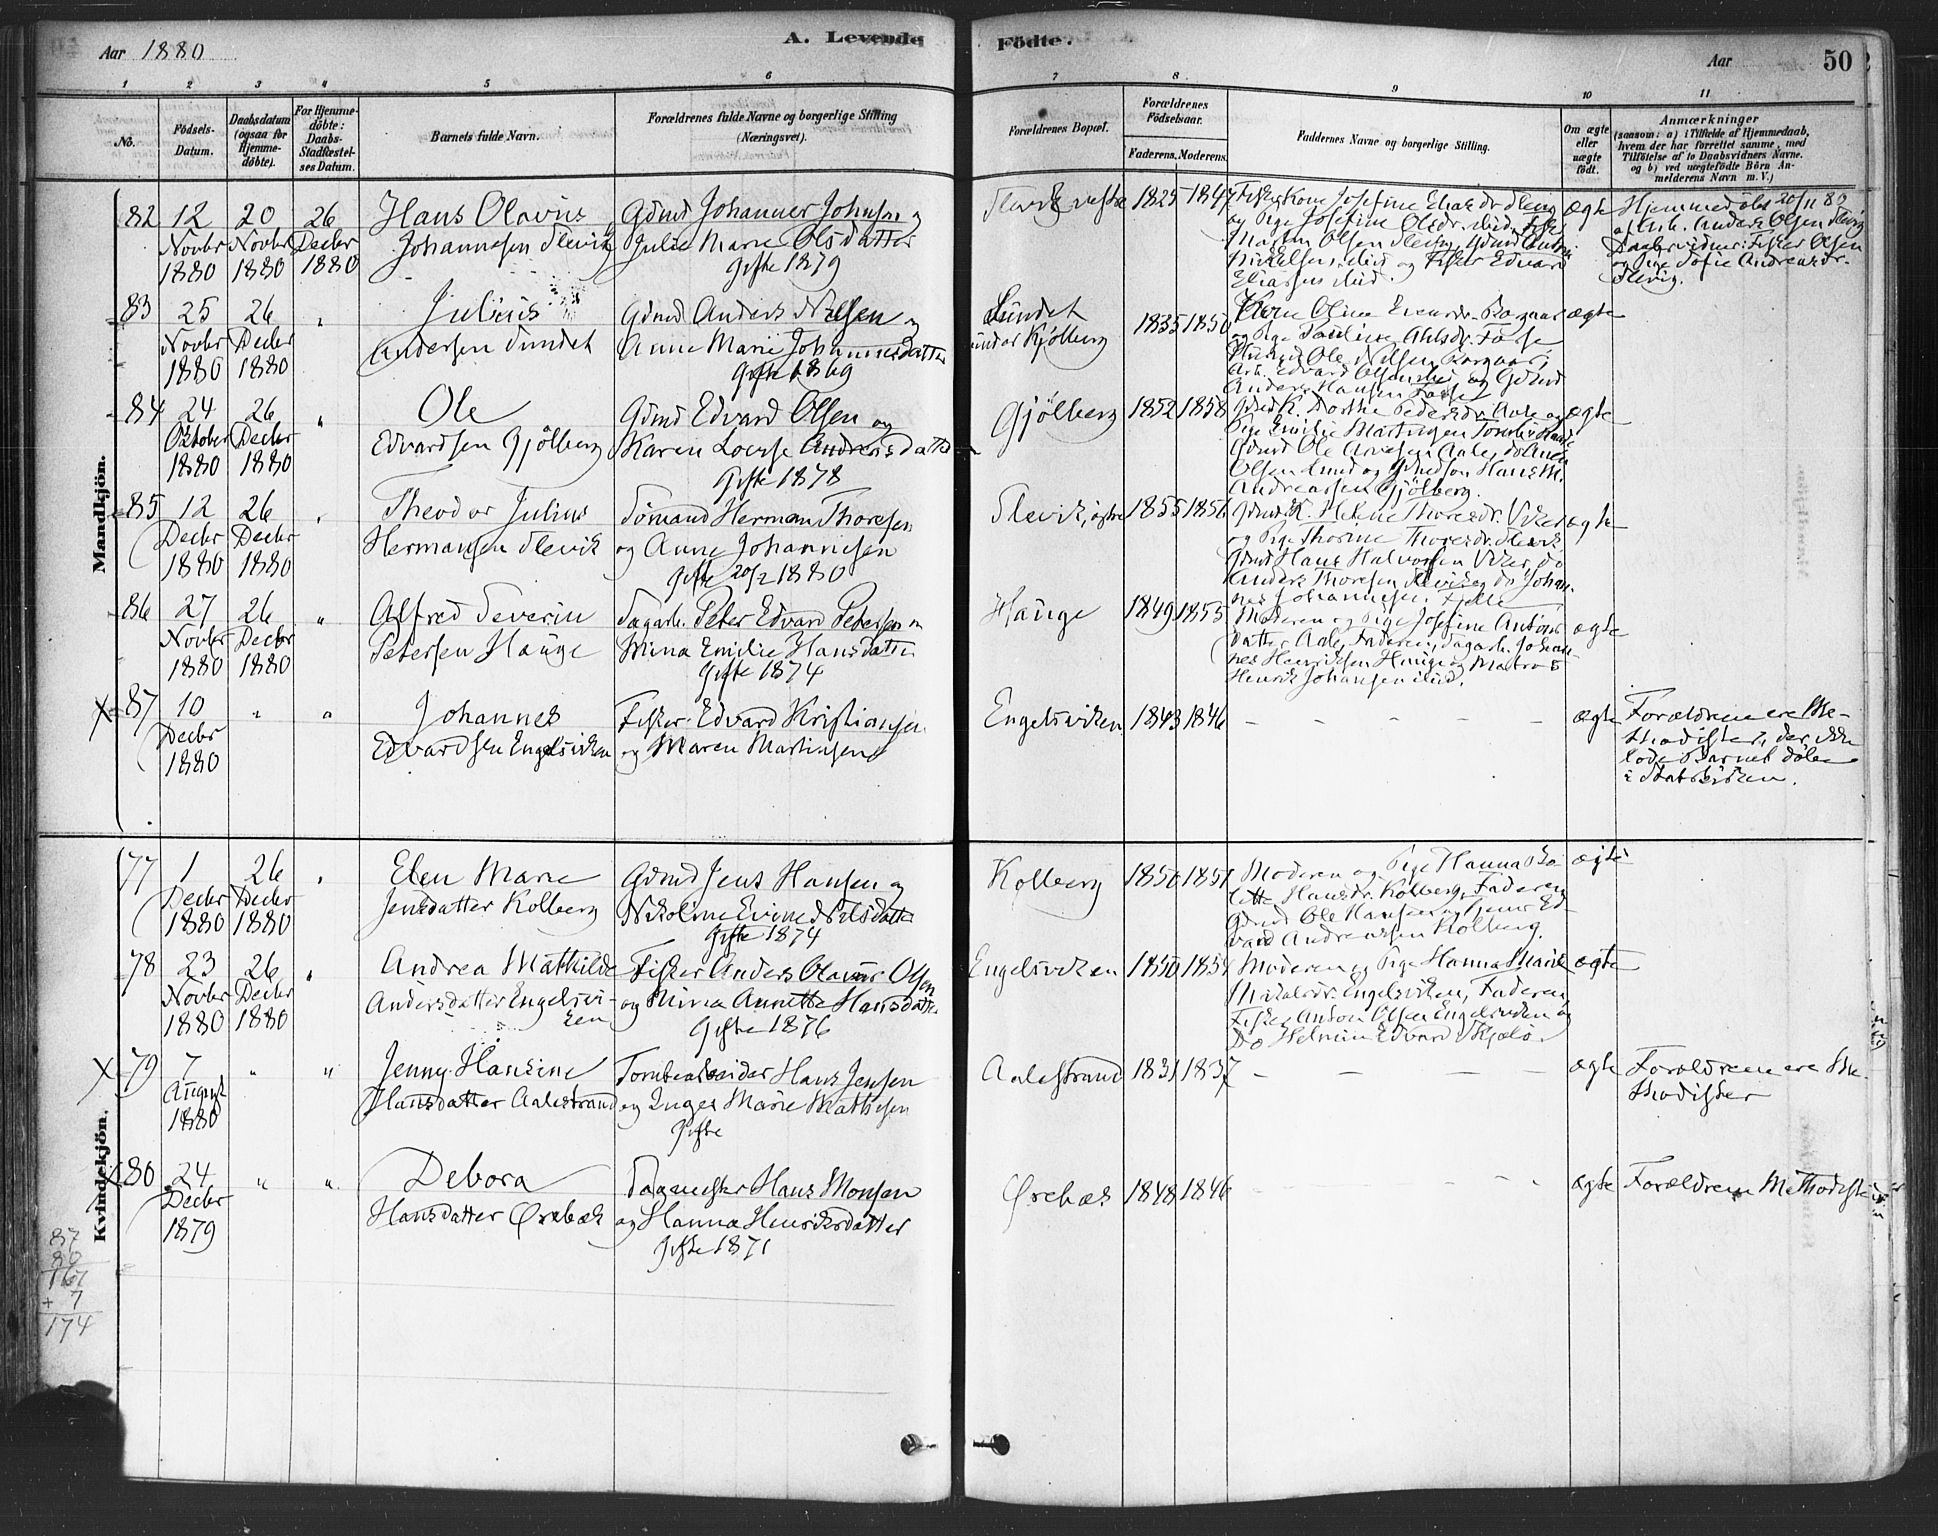 Aar 1880
A. Levende
Födte.
Aar
50
1 2 3 4 5 6 7 8 9 10 11
No.
Födsels-
Datum.
Daabsdatum
(ogsaa for
Hjemme-
döbte).
For Hjemme-
döbte:
Daabs-
Stadfæstel-
ses Datum.
Barnets fulde Navn.
Forældrenes fulde Navne og borgerlige Stilling
(Næringsvei).
Forældrenes Bopæl.
Forældrenes
Födselsaar.
Faderens. Moderens.
Faddernes Navne og borgerlige Stilling.
Om ægte
eller
uægte
födt.
Anmærkninger
(saasom: a) i Tilfælde af Hjemmedaab,
hvem der har forrettet samme, med
Tilföielse af to Daabsvidners Navne.
og b) ved uægtefödte Börn An-
melderens Navn m. V.)
Mandkjön.
82 12 20 26 Hans Olavus Gdmd Johannes Johnsen og
Novbr Novbr Decbr Johannesen Slevik Julie Marie Olsdatter
1880 1880 1880 Gifte 1879
Slevik 1825 1847
Josefine
og Pige Josefine Olsdr. ibid,
Martin Olsen Slevig, Gdmd Anton
Mikkelsen ibid. og Fisker Edvard
Eliassen ibid.
ægte
Hjemmedöbt 20/11 80
af Arb. Anders Olsen Slevig
Daabsvidner: Fisker Olsen
og Pige Sofie Andreasdr.
Slevig.
83 25 26 " Julius Gdmd Anders Nilsen og
Novbr Decbr Andersen Sundet Anne Marie Johannesdatter
1880 1880 Gifte 1869
Sundet
under Kjölberg 1835 1850
Oline
og Pige
Ole Nilsen
Arb. Edvard Olsen ibid, og Gdmd
Anders Hansen
ægte
84 24 26 " Ole Gdmd Edvard Olsen og
Oktober Decbr Edvardsen Gjölberg Karen Lovise Andreasdatter
1880 1880 Gifte 1878
Gjölberg 1852 1858
Pedersdr. Aale og
Pige Emilie Martinsen
Gdmd Ole
Olsen Lund og Gdmdsön Hans M.
Andreassen Gjölberg.
ægte
85 12 26 " Theodor Julius Sömand Herman Thoresen
Decbr Decbr Hermansen Slevik og Anne Johannesen
1880 1880 Gifte 20/2 1880
Slevik, östre 1855 1856
Gdmds K. Helene Thoresdr. Viker
og Pige Thorine Thoresdr. Slevik
Gdmd Hans Halvorsen Viker, do
Anders Thoresen Slevik og do Johan-
nes Johannesen. Fjelle
ægte
86 27 26 " Alfred Severin Sagarb. Peter Edvard Petersen og
Novbr Decbr Petersen Hauge Mina Emilie Hansdatter
1880 1880 Gifte 1874
Hauge 1849 1855
Moderen og Pige Josefine Antons
datter Aale, Faderen, Sagarb. Johan-
nes Henriksen Hauge og Matros
Henrik Johansen ibid.
ægte
X 87 10 " " Johannes Fisker Edvard Kristiansen
Decbr Edvardsen Engelsviken og Maren Martinsen
1880
Engelsviken 1843 1846 – – – – – ægte
Forældrene ere Me-
thodister, der ikke
lode Barnet döbe
i Statskirken.
Kvindekjön.
77 1 26 " Elen Marie Gdmd Jens Hansen og
Decbr Decbr Jensdatter Kolberg Nikoline Evine Nilsdatter
1880 1880 Gifte 1874
Kolberg 1850 1851
Moderen og Pige Hanna Bo-
lette Hansdr. Kolberg, Faderen,
Gdmd Ole Hansen og Tjener Ed-
vard Andreassen Kolberg.
ægte
78 23 26 " Andrea Mathilde Fisker Anders Olavus Olsen
Novbr Decbr Andersdatter Engelsvi- og Mina Annette Hansdatter
1880 1880 ken Gifte 1876
Engelsviken 1850 1854
Moderen og Pige Hanna Marie
Engelsviken, Faderen,
Fisker Anton Olsen Engelsviken og
Do Edvard Skjælö.
ægte
X 79 7 " " Jenny Hansine Tomtearbeider Hans Jensen
August Hansdatter Aalestrand og Inger Marie Mathisen
1880 Gifte
Aalestrand 1831 1837 – – – – ægte
Forældrene ere Me-
thodister
X 80 24 " " Debora Sagmester Hans Monsen
Decbr Hansdatter Örebæk og Hanna Henriksdatter
1879 Gifte 1871
Örebæk 1848 1846 ægte
Forældrene Methodister
87
80
167
+ 7
174